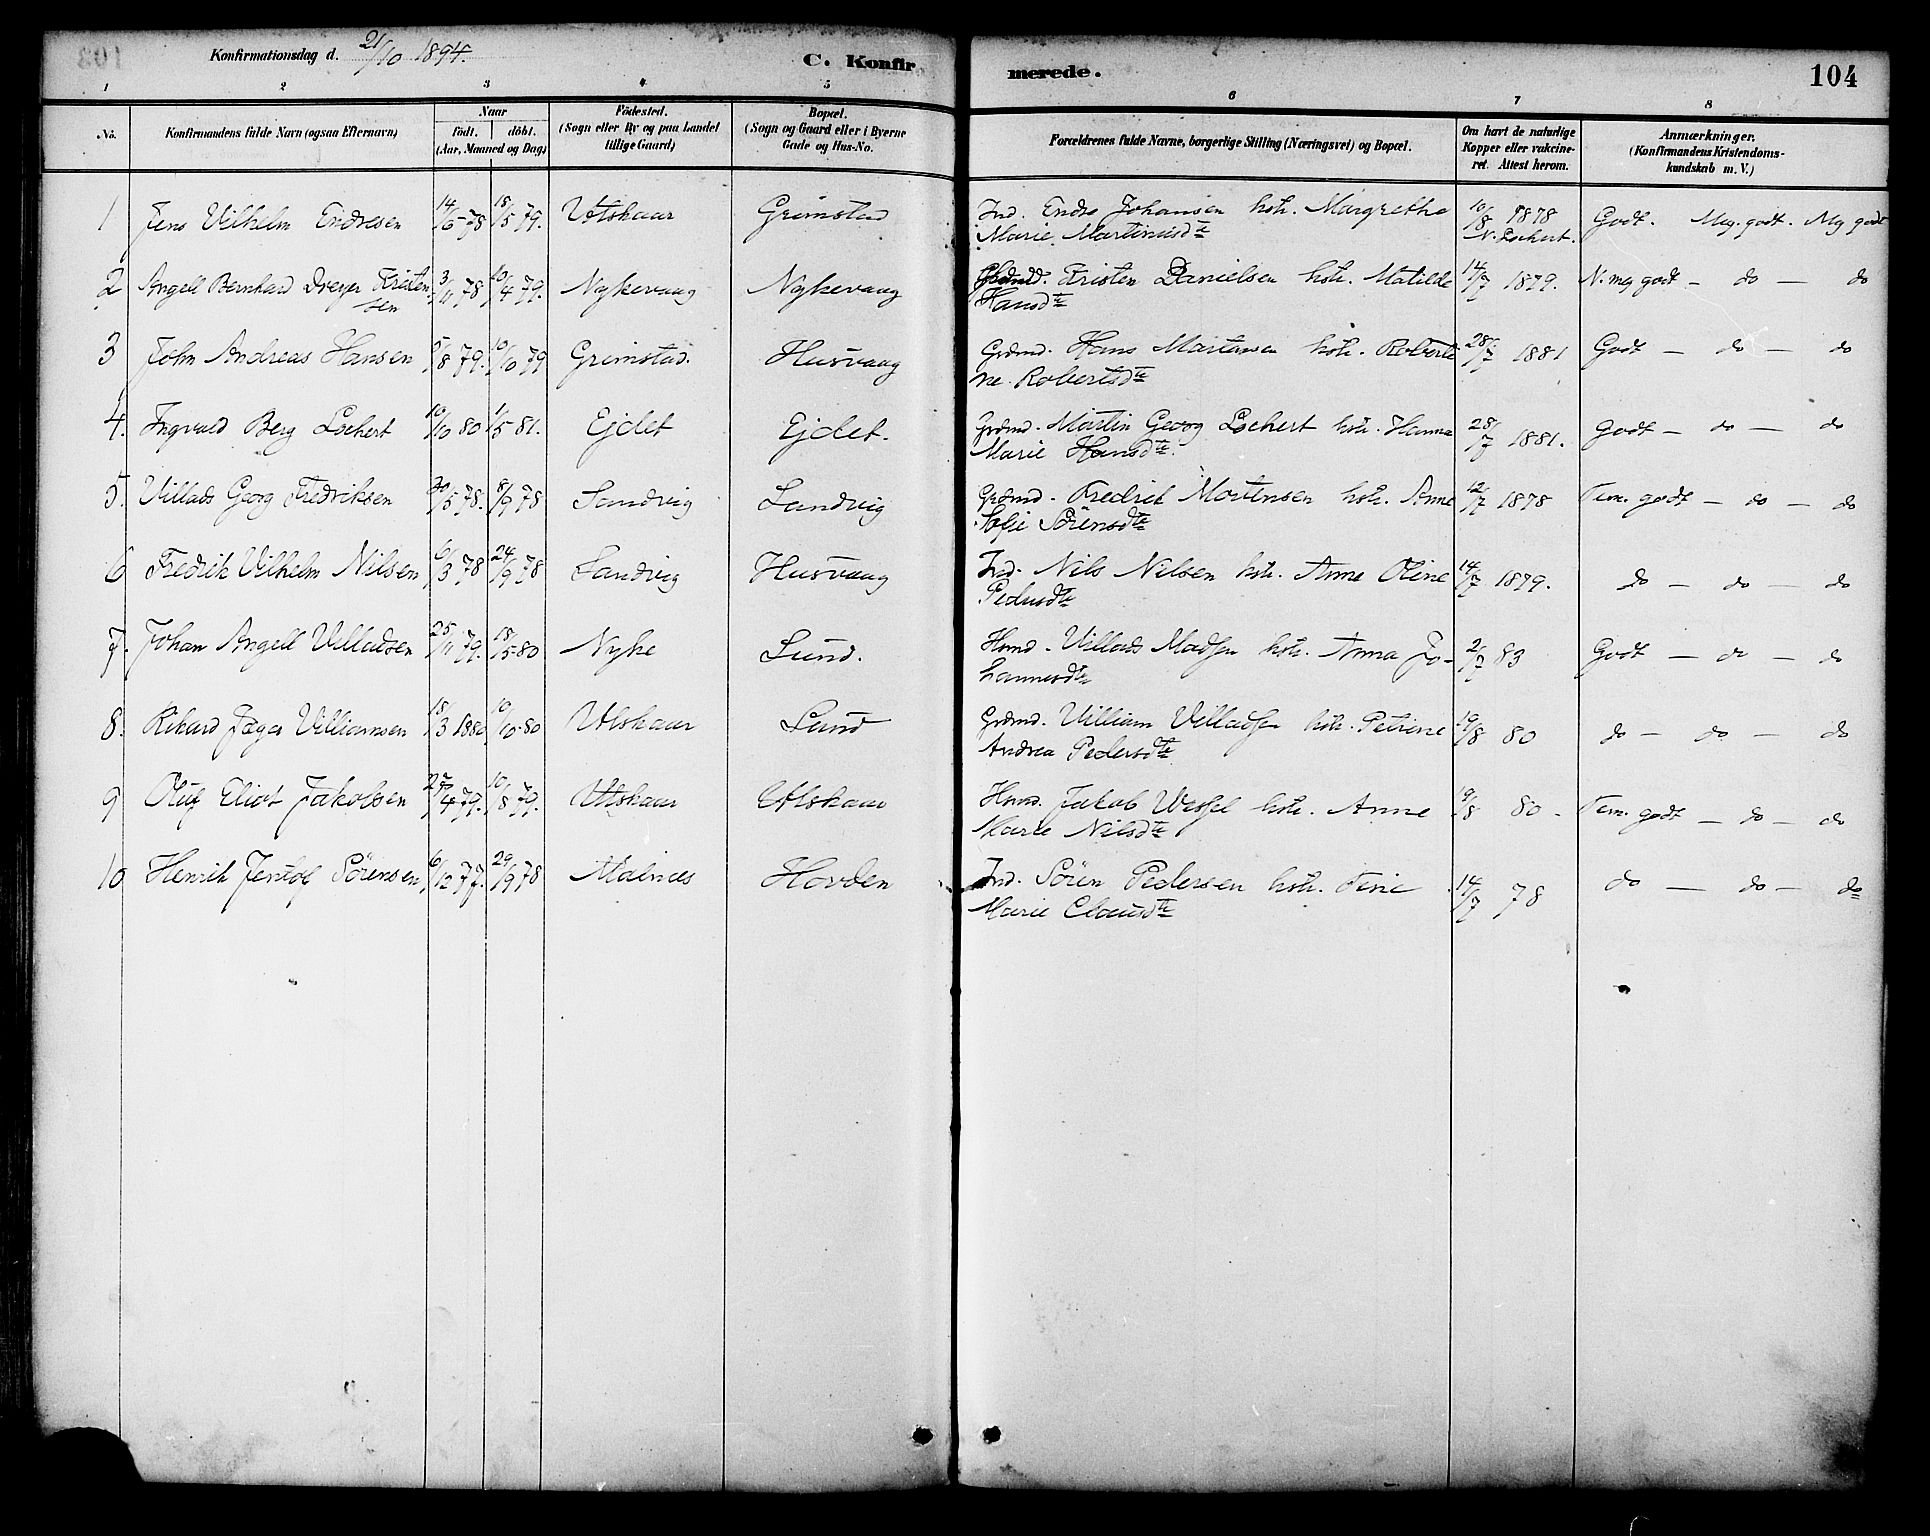 Konfirmationsdag d. 21/10 1894.
C. Konfirmerede.
104
1 2 3 4 5 6 7 8
No.
Konfirmandens fulde Navn (ogsaa Efternavn)
Naar
födt. döbt.
(Aar, Maaned og Dag)
Födested.
(Sogn eller By og paa Landet
tillige Gaard)
Bopæl.
(Sogn og Gaard eller i Byerne
Gade og Hus-No.
Forældrenes fulde Navne, borgerlige Stilling (Næringsvei) og Bopæl.
Om havt de naturlige
Kopper eller vakcine-
ret. Attest herom.
Anmærkninger.
(Konfirmandens Kristendoms-
kundskab m. V.)
1 Jens Vilhelm Endresen 14/6 78 18/5 79. Utskaar Grimstad Ind. Endre Johansen hstr. Margrethe 10/8 1878 Godt. Meg. godt. Meg godt
Marie Martinusdtr N. Lockert.
2 Angell Bernhard Dreyer Kristen 3/11 78 10/4 79. Nykevaag Nykevaag Kristen Danielsen hstr. Matilde 14/7 1879. N. meg godt – do – do
sen Hansdtr
3 John Andreas Hansen 5/8 79. 10/10 79 Grimstad. Husvaag Grdmd. Hans Martinsen hstr. Roberti 28/7 1881 Godt – do – do
ne Robertsdtr
4. Ingvald Berg Lockert 10/10 80 1/5 81. Ejdet Ejdet. Grdmd. Martin Georg Lockert hstr. Hanna 28/7 1881. Godt – do – do
Marie Hansdtr.
5. Villads Georg Fredriksen 30/5 78. 8/9 78 Sandvig Sandvig Grdmd. Fredrik Mortensen hstr. Anne 12/7 1878 Tem. godt – do – do
Sofie Sörensdtr
6 Fredrik Vilhelm Nilsen 6/3 78 24/9 78 Sandvig Husvaag Ind. Nils Nilsen hstr. Anne Oline 14/7 1879. do – do – do
Pedersdtr
7. Johan Angell Villadsen 25/11 79. 18/5 80 Nyke Lund. Hsmd. Villads Madsen hstr. Anna Jo- 2/7 83 Godt – do – do
hannesdtr
8. Rikard Jæger Villiamsen 18/3 1880 10/10 80 Utskaar Lund Grdmd. Villiam Villadsen hstr. Petrine 19/8 80 do – do – do
Andrea Pedersdtr
9 Oluf Eliot Jakobsen 27/4 79. 10/8 79. Utskaar Utskaar Hsmd. Jakob Wessel hstr. Anne 19/8 80 – Tem. godt – do – do
Marie Nilsdtr
10 Henrik Jentof Sörensen 6/12 77. 29/9 78 Malnes Hovden Ind. Sören Pedersen hstr. Tine 14/7 78 do – do – do
Marie Clausdtr